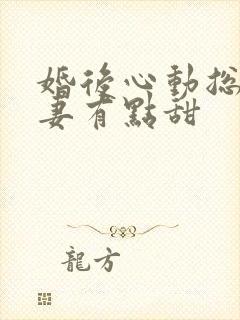 婚後心動總
妻有點甜
龍方